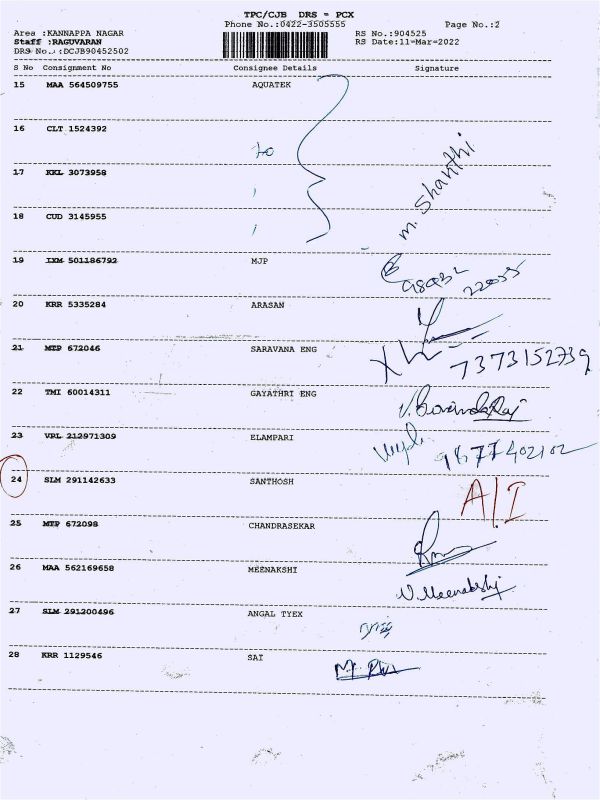 TPC/CJB DRS - PCX
Phone No.:0422-3505555 Page No.:2
Area :KANNAPPA NAGAR RS No.:904525
Staff :RAGUVARAN RS Date:11-Mar-2022
DRS No.:DCJB90452502
S No Consignment No Consignee Details Signature
15 MAA 564509755 AQUATEK
16 CLT 1524392 to
17 KKL 3073958
M. Shanthi
18 CUD 3145955
19 IXM 501186792 MJP
20 KRR 5335284 ARASAN
21 MTP 672046 SARAVANA ENG 7373152739
22 TMI 60014311 GAYATHRI ENG
23 VPL 212971309 ELAMPARI
24 SLM 291142633 SANTHOSH A/I
25 MTP 672098 CHANDRASEKAR
26 MAA 562169658 MEENAKSHI N.Meenakshi
27 SLM 291200496 ANGAL TYEX
28 KRR 1129546 SAI